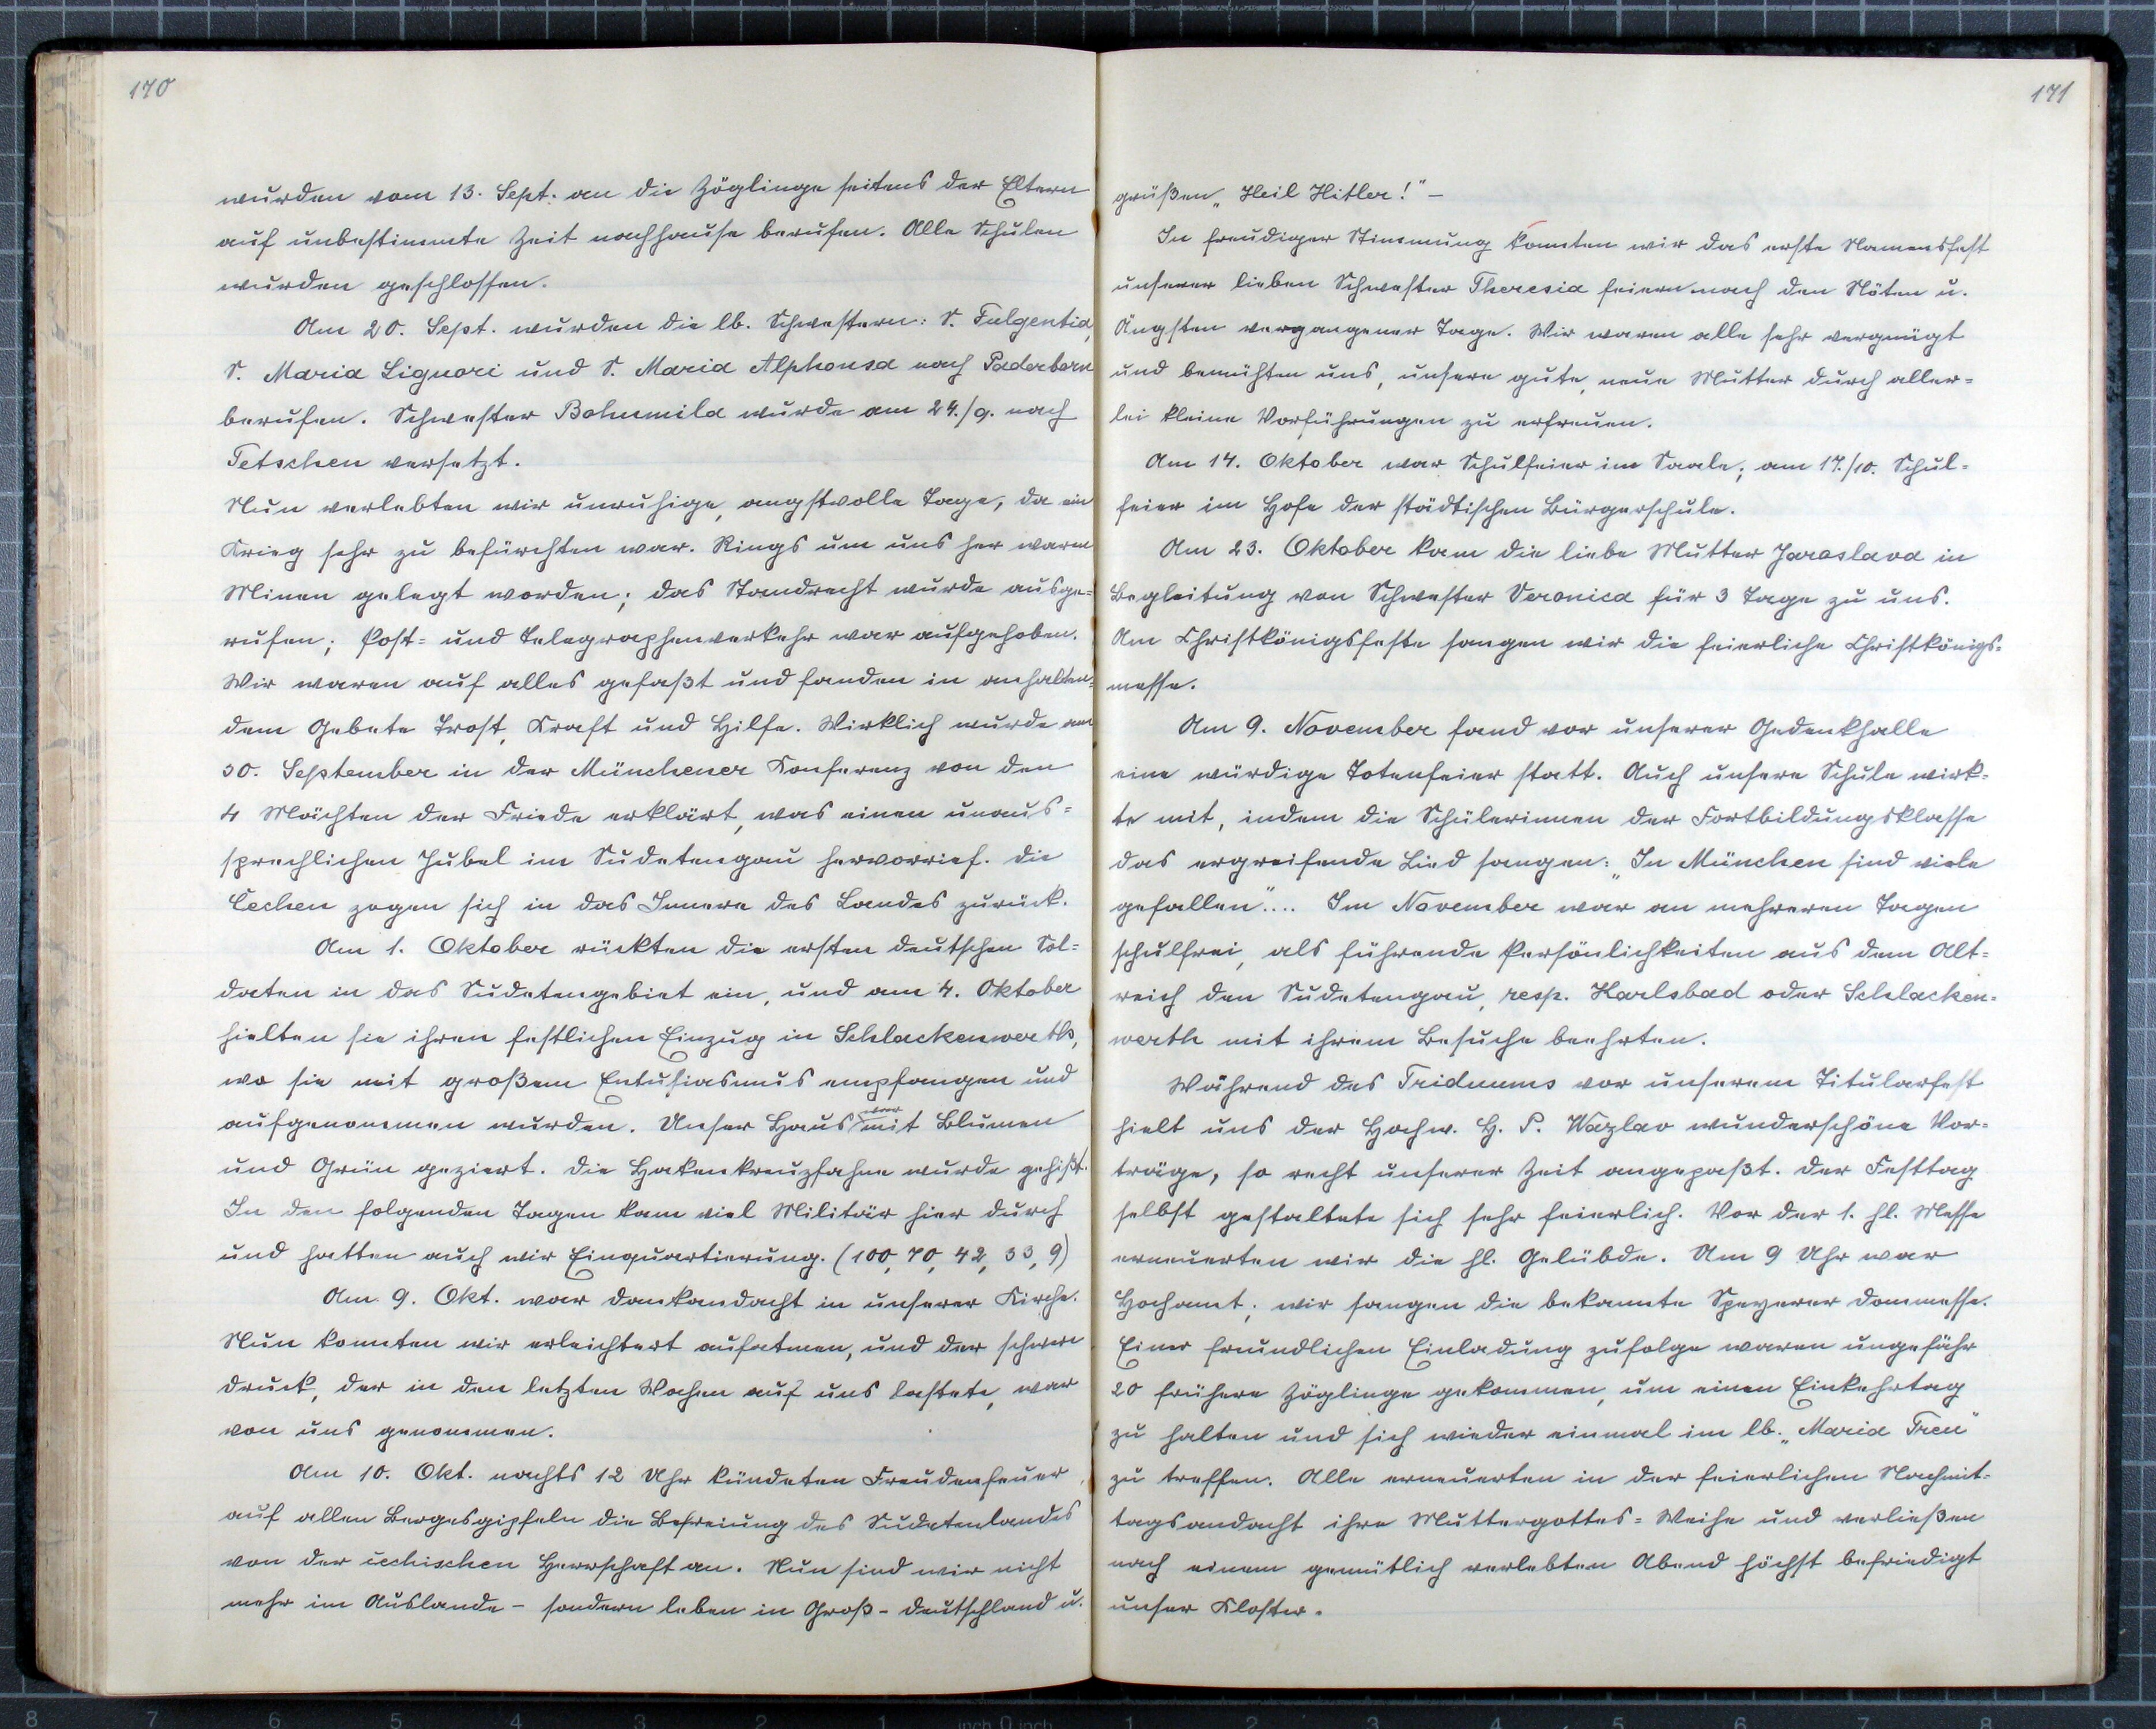 170
wurden vom 13. Sept. an die Zöglinge seitens der Eltern
auf unbestimmte Zeit nachhause berufen. Alle Schulen
wurden geschlossen.
Am 20. Sept. wurden die lb. Schwestern: S. Fulgentia,
S. Maria Liguori und S. Maria Alphonsa nach Paderborn
berufen. Schwester Bohumila wurde am 24./9. nach
Tetschen versetzt.
Nun verlebten wir unruhige, angstvolle Tage, da ein
Krieg sehr zu befürchten war. Rings um uns her waren
Minen gelegt worden; das Standrecht wurde ausge=
rufen; Post= und Telegraphenverkehr war aufgehoben.
Wir waren auf alles gefaßt und fanden in anhalten=
dem Gebete Trost, Kraft und Hilfe. Wirklich wurde am
30. September in der Münchener Konferenz von den
4 Mächten der Friede erklärt, was einen unaus=
sprechlichen Jubel im Sudetengau hervorrief. Die
Čechen zogen sich in das Innere des Landes zurück.
Am 1. Oktober rückten die ersten deutschen Sol=
daten in das Sudetengebiet ein, und am 4. Oktober
hielten sie ihren festlichen Einzug in Schlackenwerth,
wo sie mit großem Entusiasmus empfangen und
aufgenommen wurden. Unser Haus war mit Blumen
und Grün geziert. Die Hakenkreuzfahne wurde gehißt.
In den folgenden Tagen kam viel Militär hier durch
und hatten auch wir Einquartierung. (100, 70, 42, 33, 9)
Am 9. Okt. war Dankandacht in unserer Kirche.
Nun konnten wir erleichtert aufatmen, und der schwere
Druck, der in den letzten Wochen auf uns lastete, war
von uns genommen.
Am 10. Okt. nachts 12 Uhr kündeten Freudenfeuer
auf allen Bergesgipfeln die Befreiung des Sudetenlandes
von der čechischen Herrschaft an. Nun sind wir nicht
mehr im Auslande - sondern leben in Groß-Deutschland u.
171
grüßen „Heil Hitler!" -
In freudiger Stimmung konnten wir das erste Namensfest
unserer lieben Schwester Theresia feiern nach den Nöten u.
Ängsten vergangener Tage. Wir waren alle sehr vergnügt
und bemühten uns, unsere gute, neue Mutter durch aller=
lei kleine Vorführungen zu erfreuen.
Am 14. Oktober war Schulfeier im Saale; am 17./10. Schul=
feier im Hofe der städtischen Bürgerschule.
Am 23. Oktober kam die liebe Mutter Jaroslava in
Begleitung von Schwester Veronica für 3 Tage zu uns.
Am Christkönigsfeste sangen wir die feierliche Christkönigs=
messe.
Am 9. November fand vor unserer Gedenkhalle
eine würdige Totenfeier statt. Auch unsere Schule wirk=
te mit, indem die Schülerinnen der Fortbildungsklasse
das ergreifende Lied sangen: „In München sind viele
gefallen".... Im November war an mehreren Tagen
schulfrei, als führende Persönlichkeiten aus dem Alt=
reich den Sudetengau, resp. Karlsbad oder Schlacken=
werth mit ihrem Besuche beehrten.
Während des Triduums vor unserem Titularfest
hielt uns der Hochw. H. P. Wazlav wunderschöne Vor=
träge, so recht unserer Zeit angepaßt. Der Festtag
selbst gestaltete sich sehr feierlich. Vor der 1. hl. Messe
erneuerten wir die hl. Gelübde. Um 9 Uhr war
Hochamt; wir sangen die bekannte Speyerer Dommesse.
Einer freundlichen Einladung zufolge waren ungefähr
20 frühere Zöglinge gekommen, um einen Einkehrtag
zu halten und sich wieder einmal im lb. „Maria Treu"
zu treffen. Alle erneuerten in der feierlichen Nachmit=
tagsandacht ihre Muttergottes=Weihe und verließen
nach einem gemütlich verlebten Abend höchst befriedigt
unser Kloster.
8 7 6 5 4 3 2 1 inch 0 inch 1 2 3 4 5 6 7 8 9